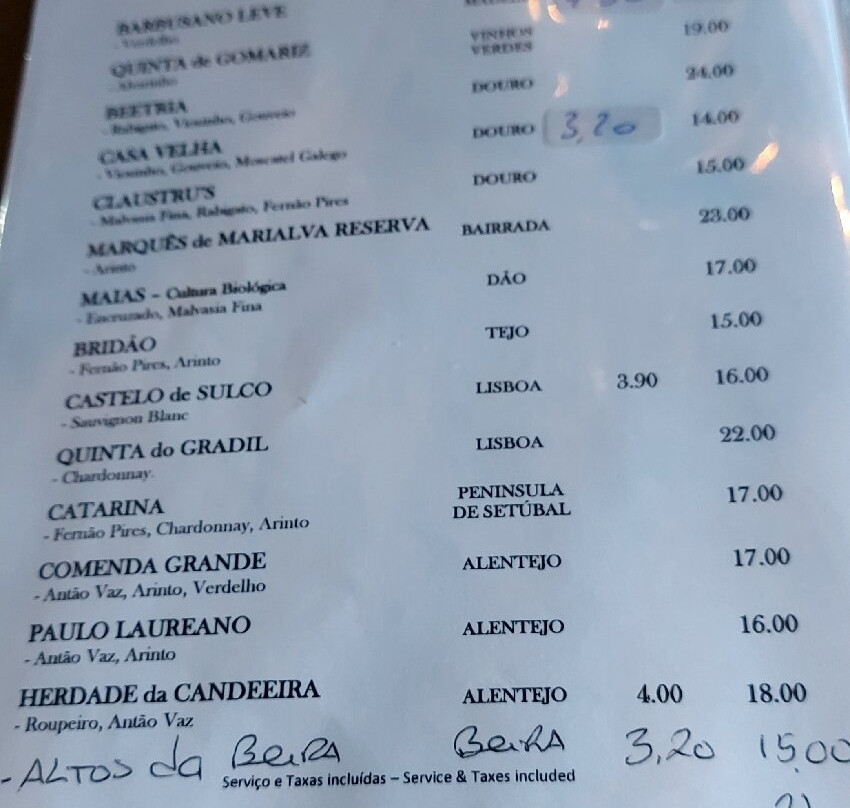 BARBUSANO LEVE
- Verdelho
QUINTA de GOMARIZ VINHOS VERDES 19.00
- Alvarinho
BEETRIA DOURO 24.00
- Rabigato, Viosinho, Gouveio
CASA VELHA DOURO 3,20 14.00
- Viosinho, Gouveio, Moscatel Galego
CLAUSTRU'S DOURO 15.00
- Malvasia Fina, Rabigato, Fernão Pires
MARQUÊS de MARIALVA RESERVA BAIRRADA 23.00
- Arinto
MAIAS – Cultura Biológica DÃO 17.00
- Encruzado, Malvasia Fina
BRIDÃO TEJO 15.00
- Fernão Pires, Arinto
CASTELO de SULCO LISBOA 3.90 16.00
- Sauvignon Blanc
QUINTA do GRADIL LISBOA 22.00
- Chardonnay.
CATARINA PENINSULA DE SETÚBAL 17.00
- Fernão Pires, Chardonnay, Arinto
COMENDA GRANDE ALENTEJO 17.00
- Antão Vaz, Arinto, Verdelho
PAULO LAUREANO ALENTEJO 16.00
- Antão Vaz, Arinto
HERDADE da CANDEEIRA ALENTEJO 4.00 18.00
- Roupeiro, Antão Vaz
- ALTOS da BEIRA BEIRA 3,20 15,00
Serviço e Taxas incluídas – Service & Taxes included